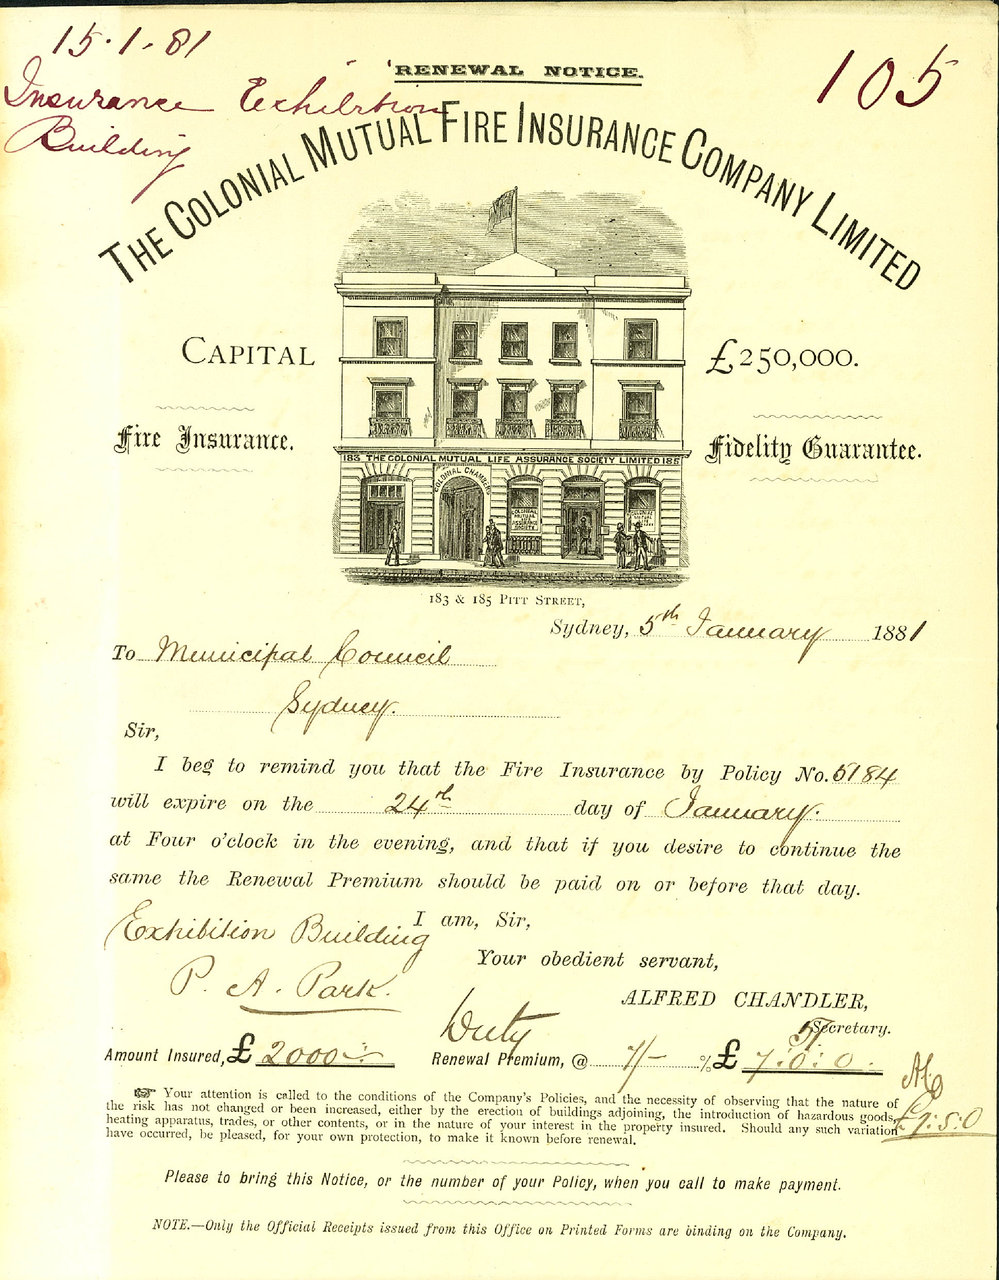 15.1.81
RENEWAL NOTICE.
105
Insurance Exhibition
Building
THE COLONIAL MUTUAL FIRE INSURANCE COMPANY LIMITED
CAPITAL £250,000.
Fire Insurance. Fidelity Guarantee.
183 THE COLONIAL MUTUAL LIFE ASSURANCE SOCIETY LIMITED 185
COLONIAL CHAMBERS
COLONIAL MUTUAL LIFE ASSURANCE SOCIETY
183 & 185 PITT STREET,
Sydney, 5th January 1881
To Municipal Council
Sydney.
Sir,
I beg to remind you that the Fire Insurance by Policy No. 5184
will expire on the 24th day of January.
at Four o'clock in the evening, and that if you desire to continue the
same the Renewal Premium should be paid on or before that day.
I am, Sir,
Exhibition Building
Your obedient servant,
P. A. Park.
ALFRED CHANDLER,
Secretary.
Duty 5/
Amount Insured, £ 2000 Renewal Premium, @ 7/- % £ 7:0:0
£7:5:0
Your attention is called to the conditions of the Company's Policies, and the necessity of observing that the nature of
the risk has not changed or been increased, either by the erection of buildings adjoining, the introduction of hazardous goods,
heating apparatus, trades, or other contents, or in the nature of your interest in the property insured. Should any such variation
have occurred, be pleased, for your own protection, to make it known before renewal.
Please to bring this Notice, or the number of your Policy, when you call to make payment.
NOTE.—Only the Official Receipts issued from this Office on Printed Forms are binding on the Company.